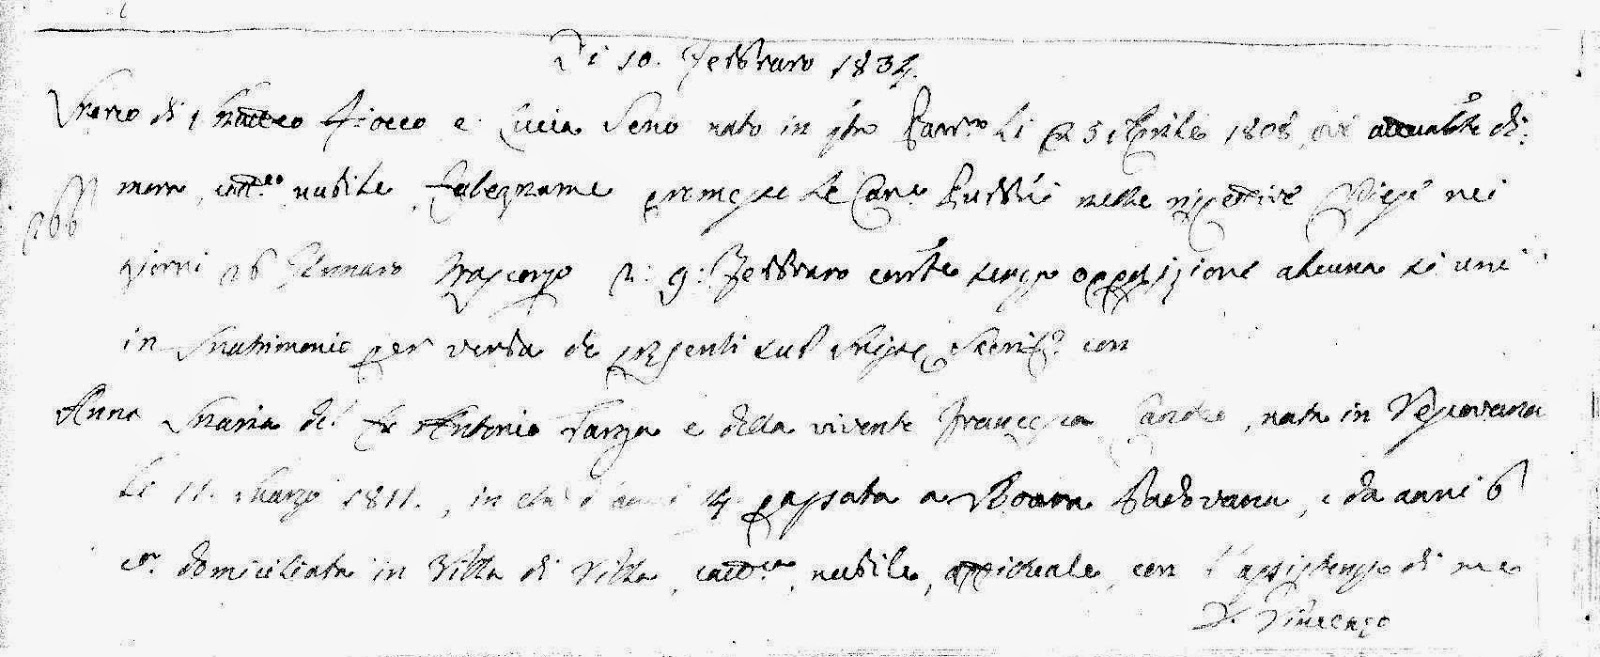 Di 10. Febbraro 1834.
di Matteo Fiocco e Lucia Seno nato in Parr.a li 25 Aprile 1808, ove attualte di:
mora, catt.co nubile, falegname premesse le Can.e Pubbli nelle rispettive Chiese nei
giorni 26 Gennaro trascorso 2: 9: Febbraro corrte senza opposizione alcuna si unì
in Matrimonio per verba de presenti sub con
Anna Maria del fu Antonio Tarza e della vivente Francesca, nata in Vescovana
li 11. Marzo 1811., in età d'anni 4 passata a Boara Padovana, e da anni 6
domiciliata in Villa di Villa, catt.ca, nubile, con l'assistenza di me
D. Vincenzo